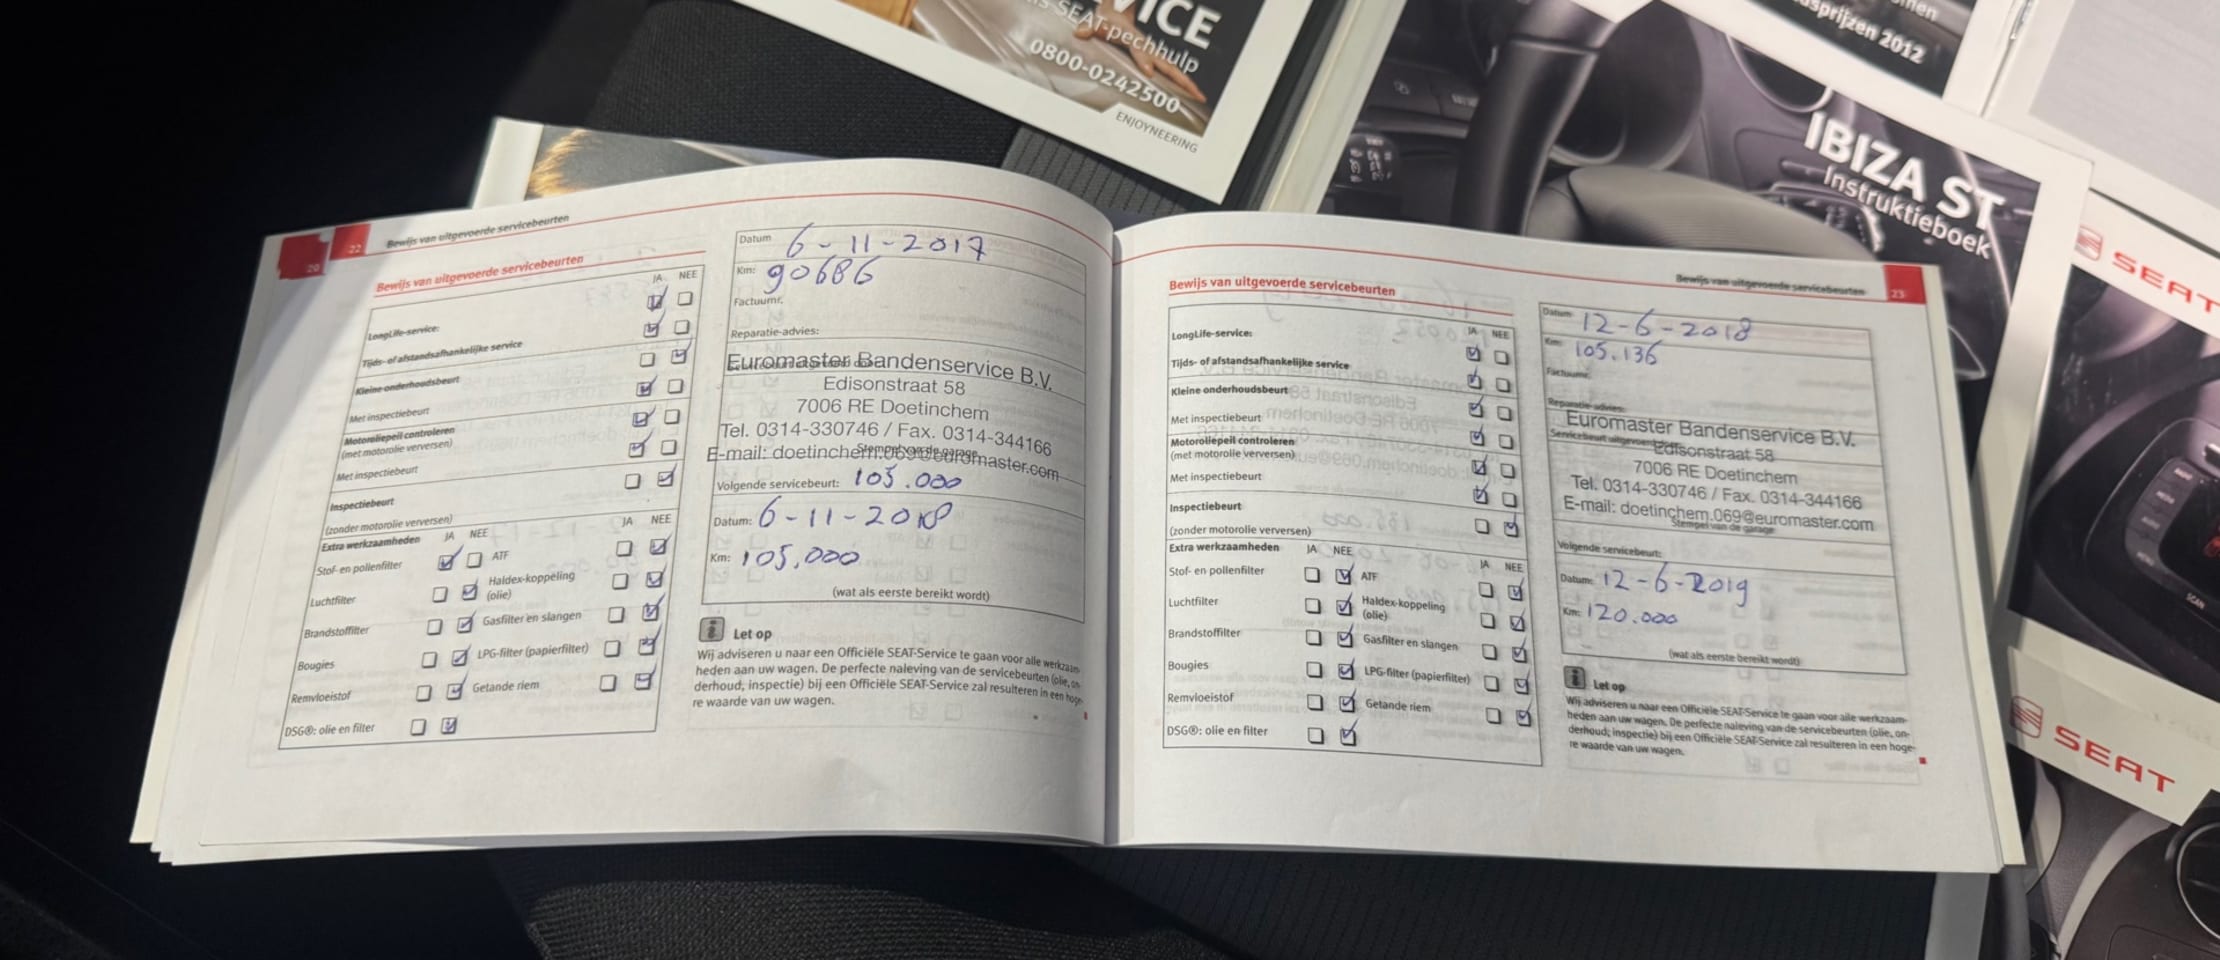 VICE
SEAT-pechhulp
0800-0242500
ENJOYNEERING
prijzen 2012
IBIZA ST
Instruktieboek
SEAT
SEAT
SCAN
20
22
Bewijs van uitgevoerde servicebeurten
Bewijs van uitgevoerde servicebeurten
JA NEE
LongLife-service:
Tijds- of afstandsafhankelijke service
Kleine onderhoudsbeurt
Met inspectiebeurt
Motoroliepeil controleren
(met motorolie verversen)
Met inspectiebeurt
Inspectiebeurt
(zonder motorolie verversen)
Extra werkzaamheden JA NEE JA NEE
Stof- en pollenfilter ATF
Luchtfilter Haldex-koppeling
(olie)
Brandstoffilter Gasfilter en slangen
Bougies LPG-filter (papierfilter)
Remvloeistof Getande riem
DSG®: olie en filter
Datum 6-11-2017
Km: 90686
Factuurnr.
Reparatie-advies:
Euromaster Bandenservice B.V.
Edisonstraat 58
7006 RE Doetinchem
Tel. 0314-330746 / Fax. 0314-344166
E-mail: doetinchem.069@euromaster.com
Volgende servicebeurt: 105.000
Datum: 6-11-2018
Km: 105,000
(wat als eerste bereikt wordt)
Let op
Wij adviseren u naar een Officiële SEAT-Service te gaan voor alle werkzaam-
heden aan uw wagen. De perfecte naleving van de servicebeurten (olie, on-
derhoud, inspectie) bij een Officiële SEAT-Service zal resulteren in een hoge-
re waarde van uw wagen.
Bewijs van uitgevoerde servicebeurten 23
Bewijs van uitgevoerde servicebeurten
JA NEE
LongLife-service:
Tijds- of afstandsafhankelijke service
Kleine onderhoudsbeurt
Met inspectiebeurt
Motoroliepeil controleren
(met motorolie verversen)
Met inspectiebeurt
Inspectiebeurt
(zonder motorolie verversen)
Extra werkzaamheden JA NEE JA NEE
Stof- en pollenfilter ATF
Luchtfilter Haldex-koppeling
(olie)
Brandstoffilter Gasfilter en slangen
Bougies LPG-filter (papierfilter)
Remvloeistof Getande riem
DSG®: olie en filter
Datum 12-6-2018
Km: 105.136
Factuurnr.
Reparatie-advies:
Euromaster Bandenservice B.V.
Edisonstraat 58
7006 RE Doetinchem
Tel. 0314-330746 / Fax. 0314-344166
E-mail: doetinchem.069@euromaster.com
Stempel van de garage
Volgende servicebeurt:
Datum: 12-6-2019
Km: 120.000
(wat als eerste bereikt wordt)
Let op
Wij adviseren u naar een Officiële SEAT-Service te gaan voor alle werkzaam-
heden aan uw wagen. De perfecte naleving van de servicebeurten (olie, on-
derhoud, inspectie) bij een Officiële SEAT-Service zal resulteren in een hoge-
re waarde van uw wagen.